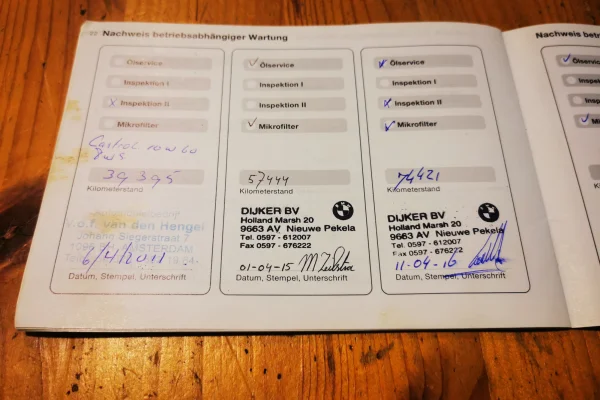 Nachweis betriebsabhängiger Wartung
Ölservice
Inspektion I
Inspektion II
Mikrofilter
Castrol
39395
Kilometerstand
v.o.f. van den Hengel
Johann Siegerstraat 7
1096
6/4/2011
Datum, Stempel, Unterschrift
Ölservice
Inspektion I
Inspektion II
Mikrofilter
57444
Kilometerstand
DIJKER BV
Holland Marsh 20
9663 AV Nieuwe Pekela
Tel. 0597 - 612007
Fax 0597 - 676222
01-04-15
Datum, Stempel, Unterschrift
Ölservice
Inspektion I
Inspektion II
Mikrofilter
74421
Kilometerstand
DIJKER BV
Holland Marsh 20
9663 AV Nieuwe Pekela
Tel. 0597 - 612007
Fax 0597 - 676222
11-04-16
Datum, Stempel, Unterschrift
Nachweis